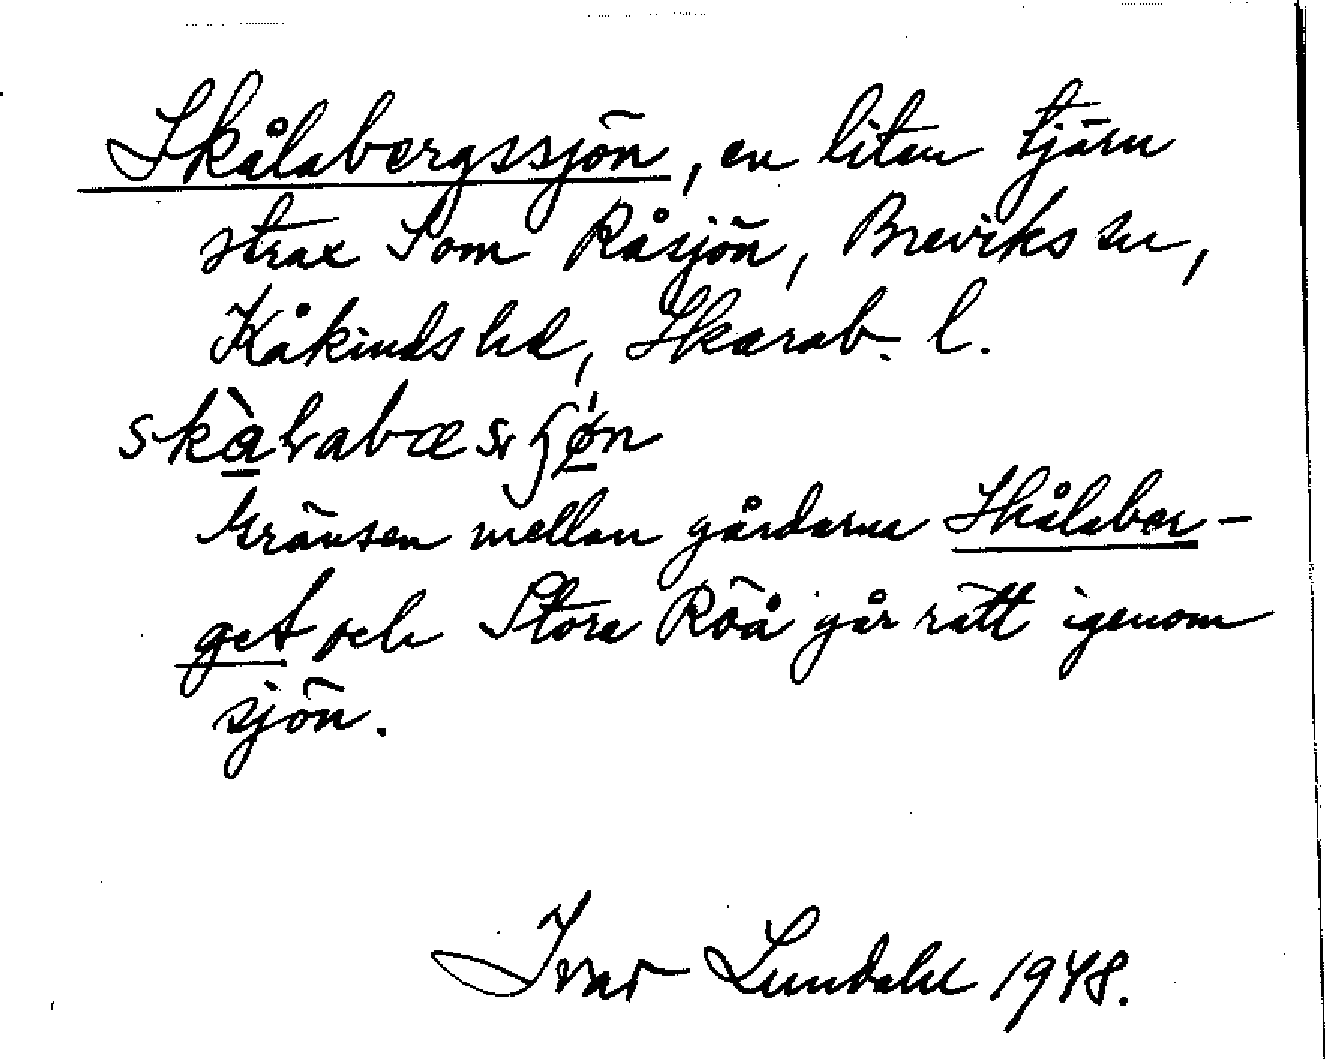 Skålabergssjön, en liten tjärn
strax S om Råsjön, Breviks sn,
Kåkinds hd, Skarab. l.
Gränsen mellan gårdarna Skålaber-
get och Stora Röå går rätt igenom
sjön.
Ivar Lundahl 1948.